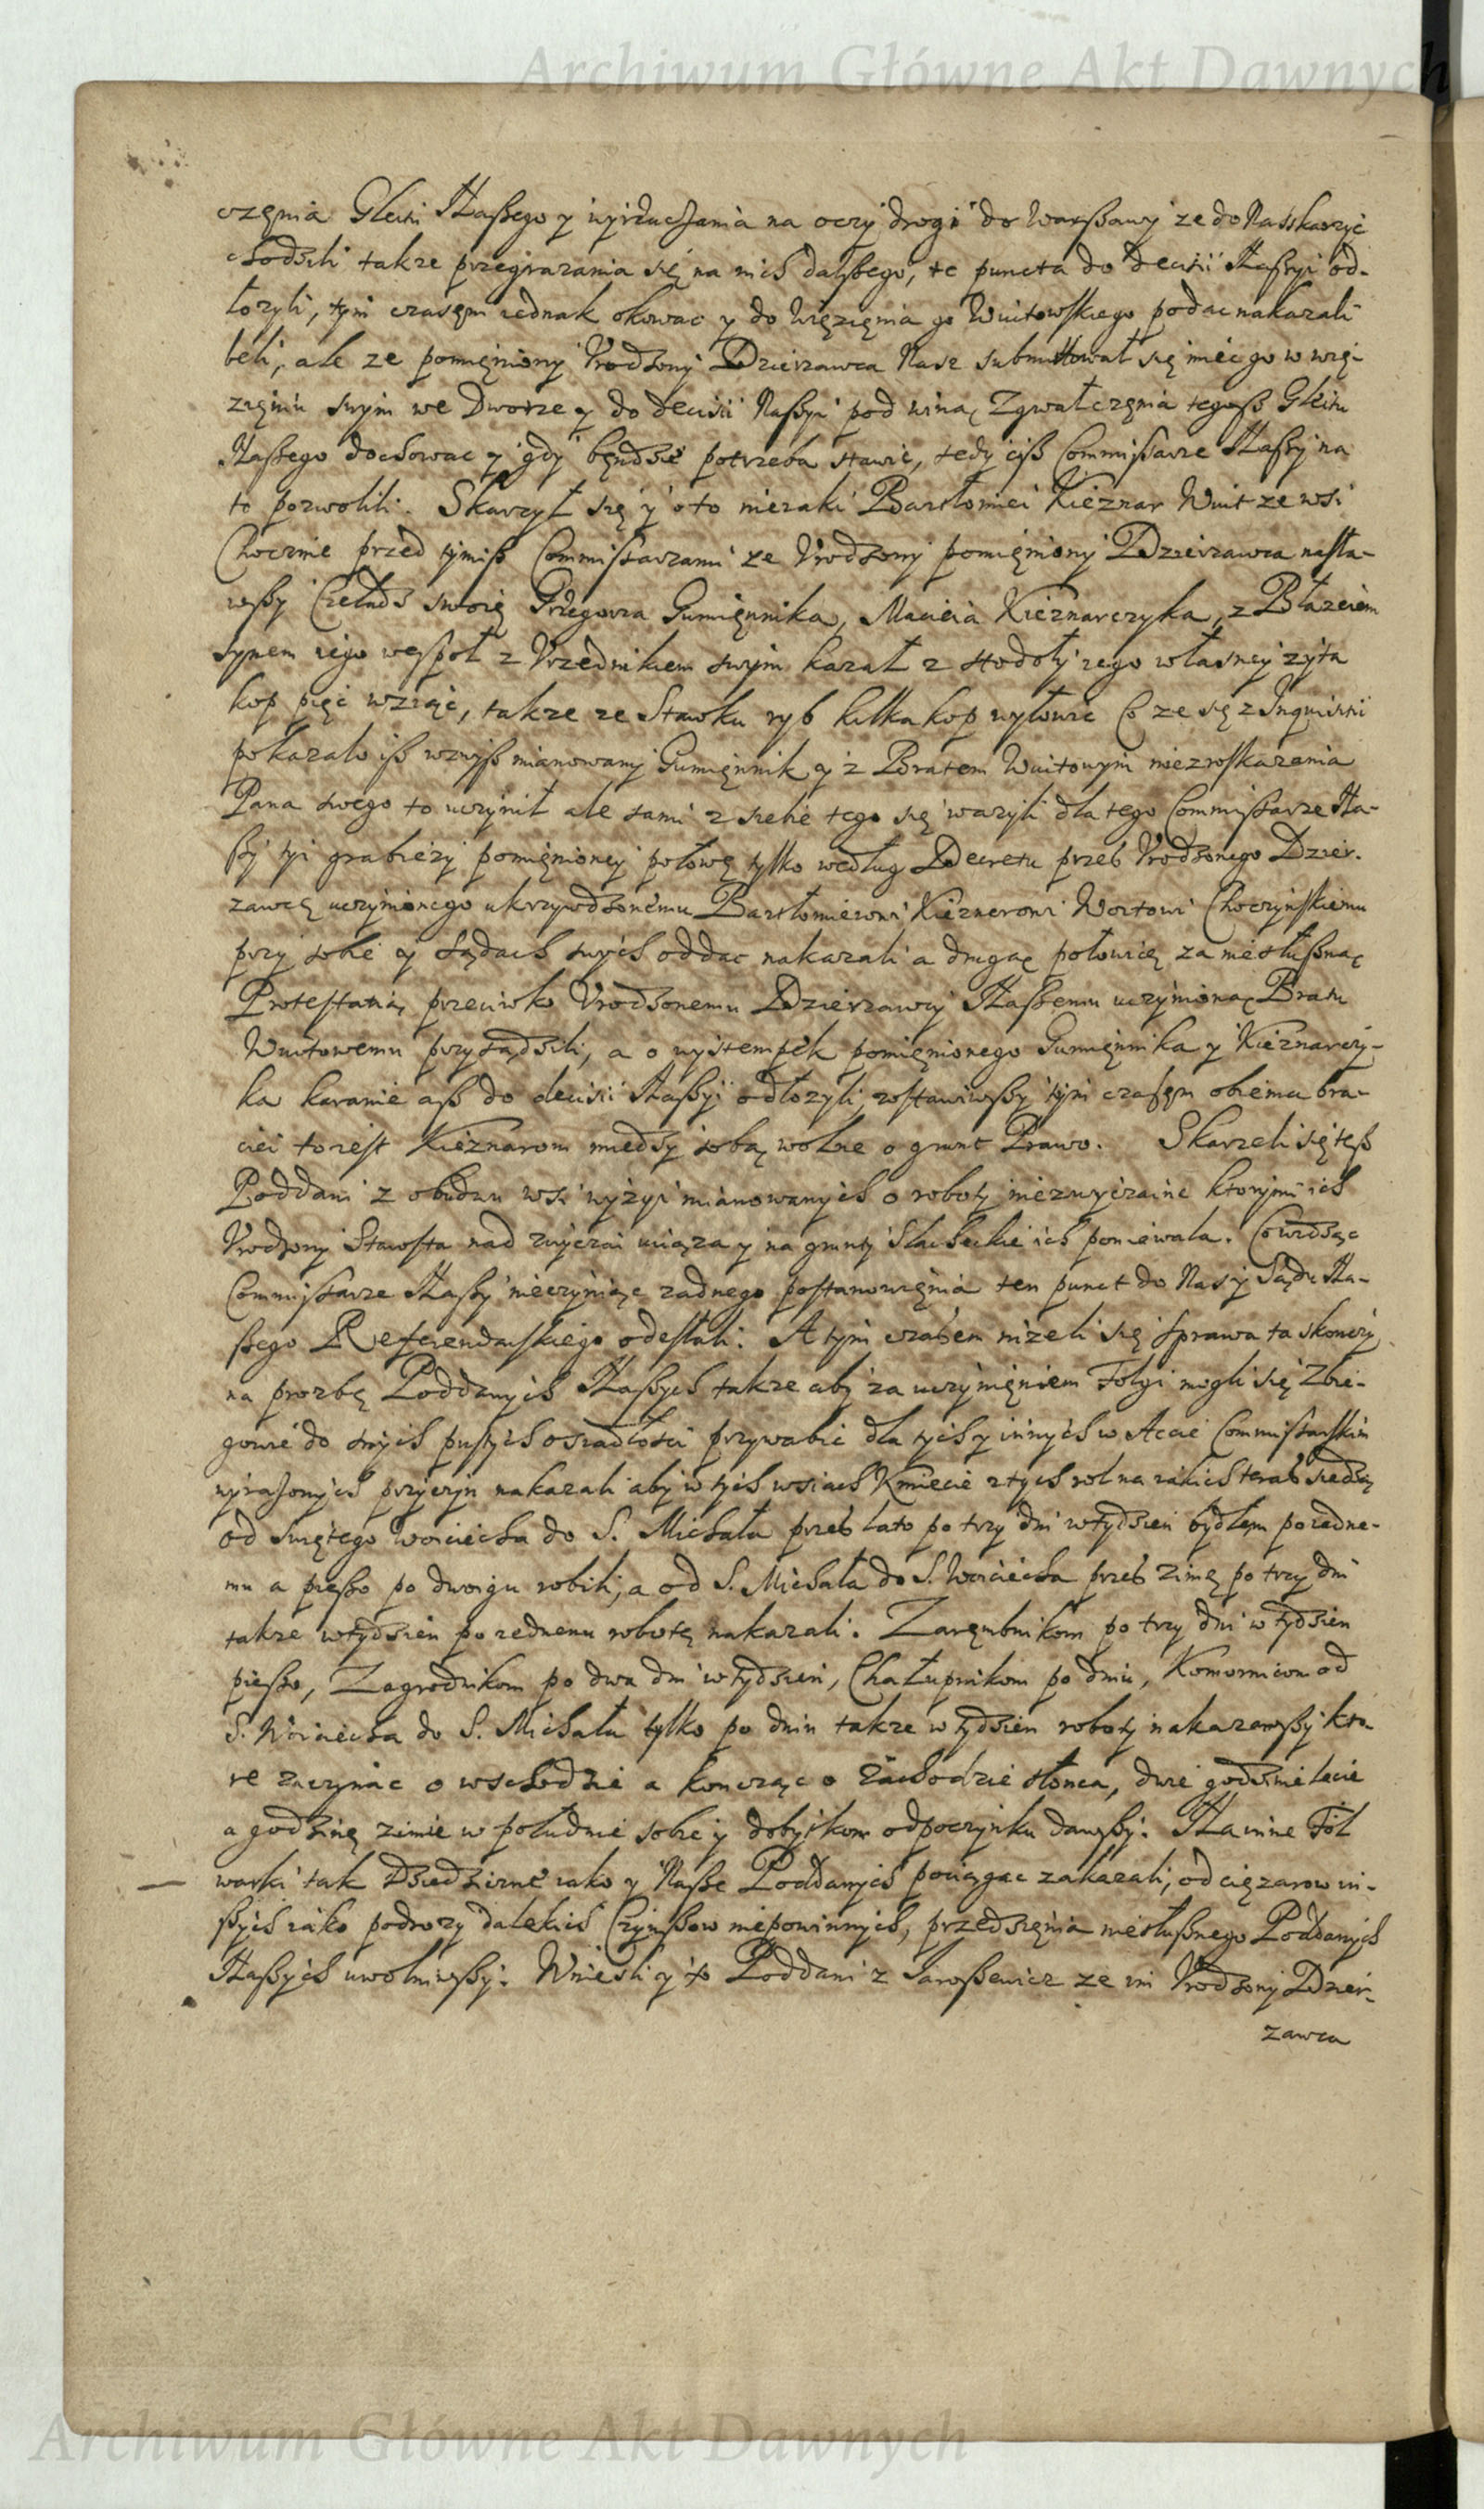 Archiwum Główne Akt Dawnych
częnia Gleitu Naßego y wyrzucżania na oczy drogi do Warßawy ze do Nas skarzyc
chodzili takze przegrazania się na nich dalßego, te puncta do decisii Naßyi od-
łozyli, tym czasęm iednak okowac y do więzięnia go Wuitowskiego podac nakazali
beli, ale ze pomięniony Vrodzony Dzierzawca Nasz submittował się miec go w wię-
zięniu swym we Dworze y do decisii Naßyi pod winaę Zgwałczęnia tegoß Gleitu
Naßego dochowac y gdy bęndzie potrzeba stawic, tedy ciß Commißarze Naßy na
to pozwolili. Skarzył się y o to nieiaki Bartłomiei Kieznar Wuit ze wsi
Chocznie przed tymiß Commißarzami ze Vrodzony pomięniony Dzierzawca nasła-
wßy Czeladz swoię Grzegorza Gumięnnika, Macieia Kieznarczyka, z Błazeiem
synem iego wespoł z Vrzednikiem swym kazał z stodoły iego własney zyta
kop pięc wziąc, takze ze Stawku ryb kilka kop wyłowic Co ze się z Inquisitii
pokazało iß wzwyß mianowany Gumięnnik y z Bratem Wuitowym niez roskazania
Pana swego to uczynił ale sami z siebie tego się wazyli dla tego Commißarze Na-
ßy tyi grabiezy pomięnioney połowę tylko według Decretu przez Vrodzonego Dzier-
zawcę uczynionego ukrzywdzonemu Bartłomieiowi Kieznerowi Woitowi Choczynskiemu
przy sobie y sądach swych oddac nakazali a drugaę połowicę za niesłußnaę
Protestatią przeciwko Vrodzonemu Dzierzawcy Naßemu uczynionaę Bratu
Wuitowemu przysądzili, a o wystempek pomięnionego Gumięnnika y Kieznarczy-
ka karanie aß do decisii Naßyi odłozyli, zostawiwßy tym czasęm obiema bra-
ciei to iest Kieznarom miedzy sobaę wolne o grunt Prawo. Skarzeli się teß
Poddani z obudwu wsi wyżyi mianowanych o roboty niezwyczaine ktorymi ich
Vrodzony Starosta nad zwyczai uciąza y na grunty Slacheckie ich poniewala. Co widząc
Commißarze Naßy nieczyniąc zadnego postanowięnia ten punct do Nas y Sądu Na-
ßego Referendarskiego odesłali. A tym czasem nizeli się sprawa ta skonczy
na prozbę Poddanych Naßych takze aby za uczynięniem Folgi mogli się Zbie-
gowie do swych pustych osiadłosci przywabic dla tych y innych w Accie Commißarskim
wyrażonych przyczyn nakazali aby w tych wsiach Kmiecie z tych rol na iakich teraz siedzą
od swiętego Woiciecha do S. Michała przez lato po trzy dni w tydzien bydłem po iedne-
mu a pießo po dwoigu robili, a od S. Michała do S. Woiciecha przez zimę po trzy dni
takze w tydzien po iednemu robotę nakazali. Zarębnikom po trzy dni w tydzien
pießo, Zagrodnikom po dwa dni w tydzien, Chałupnikom po dniu, Komornicom od
S. Woiciecha do S. Michała tylko po dniu takze w tydzien roboty nakazawßy kto-
re zaczynac o wschodzie a kącząc o zachodzie słonca, dwie godzinie lecie
a godzinę zimie w południe sobie y dobytkom odpoczynku dawßy. Na inne Fol
warki tak Dziedziczne iako y Naße Poddanych pociągac zakazali, od cięzarow in-
ßych iako podrozy dalekich Czynßow niepowinnych, przedsięcia niesłußnego Poddanych
Naßych uwolniwßy. Wniesli y to Poddani z Iaroßewicz ze im Vrodzony Dzier-
zawca
Archiwum Główne Akt Dawnych